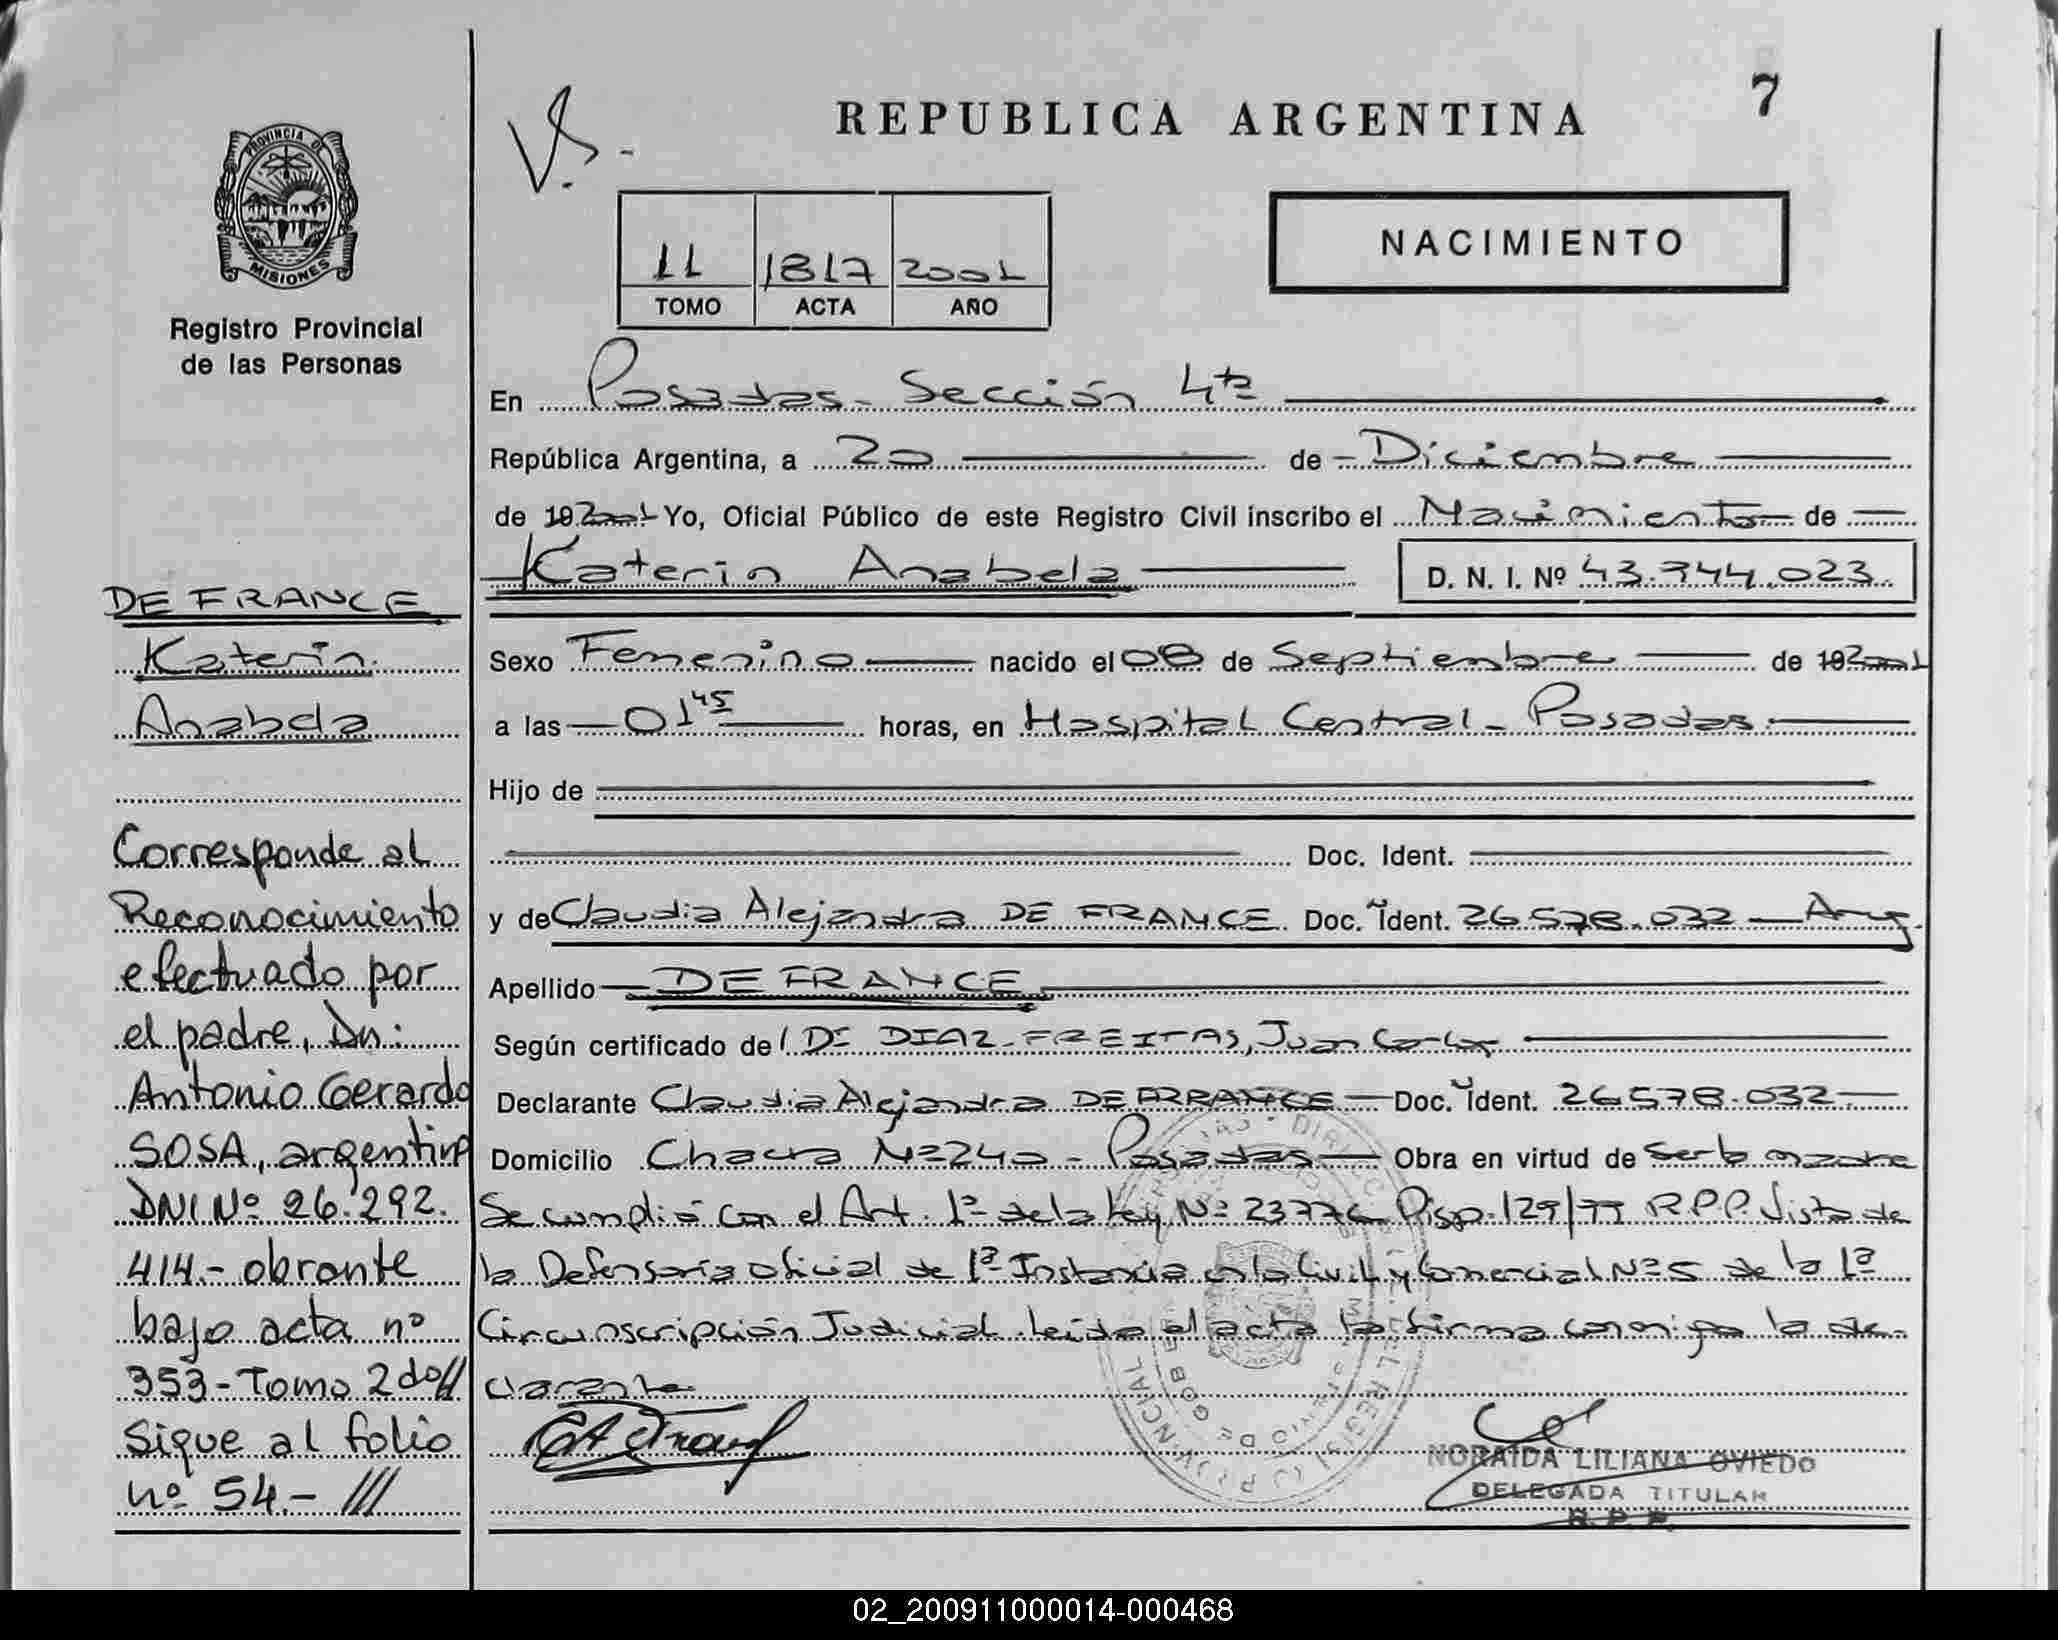 REPUBLICA ARGENTINA
7
PROVINCIA DE
MISIONES
Registro Provincial
de las Personas
11 1817 2001
TOMO ACTA AÑO
NACIMIENTO
En Posadas - Sección 4ta
República Argentina, a 20 de Diciembre
de 19 2001 Yo, Oficial Público de este Registro Civil inscribo el Nacimiento de
Katerin Anabela D. N. I. Nº 43.744.023
Sexo Femenino nacido el 08 de Septiembre de 19 2001
a las 01 45 horas, en Hospital Central - Posadas
Hijo de
Doc. Ident.
y de Claudia Alejandra DE FRANCE Doc. Ident. 26.578.032 - Arg.
Apellido DE FRANCE
Según certificado de DIAZ FREITAS, Juan Carlos
Declarante Claudia Alejandra DE FRANCE Doc. Ident. 26.578.032
Domicilio Chacra Nº 240 - Posadas Obra en virtud de Ser la madre
Se cumplió con el Art. 1º de la Ley Nº 23776 Disp. 129/99 R.P.P. Vista de
la Defensoría Oficial de 1ª Instancia en lo Civil y Comercial Nº 5 de la 1ª
Circunscripción Judicial. Leída el acta la firma conmigo la de-
clarante
NORAIDA LILIANA OVIEDO
DELEGADA TITULAR
R. P. P.
DE FRANCE
Katerin
Anabela
Corresponde al
Reconocimiento
efectuado por
el padre, Dn:
Antonio Gerardo
SOSA, argentino
DNI Nº 26.292.
414.- obrante
bajo acta nº
353 - Tomo 2do//
Sigue al folio
nº 54.- ///
02_200911000014-000468